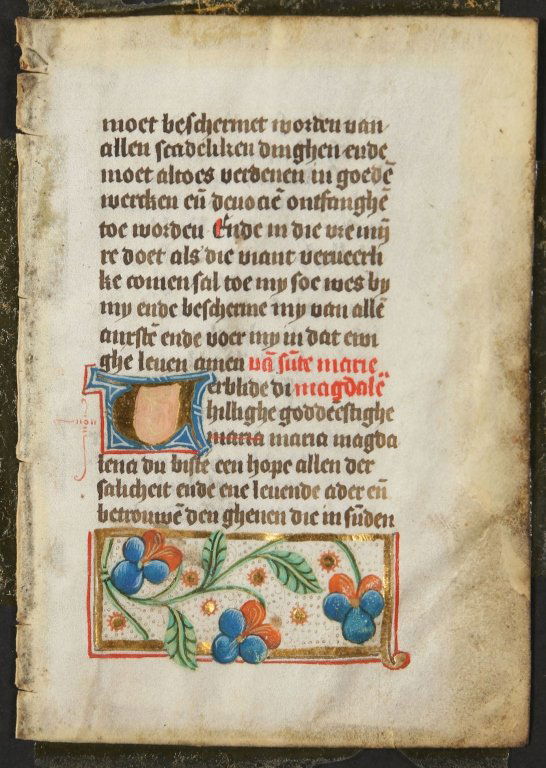 moet beschermet worden van
allen scadeliken dinghen ende
moet altoes verdenen in goedē
wercken eñ deuociē ontfanghē
toe worden Ende in die vre mÿ
re doet als die viant verueerli
ke comen sal toe my soe wes by
my ende bescherme my van allē
anrstē ende voer my in dat ewi
ghe leuen amen vā sūte marie
erblide di magdalē
hillighe goddeestighe
non
maria maria magda
lena du biste een hope allen der
salicheit ende ene leuende ader eñ
betrouwē den ghenen die in sūden